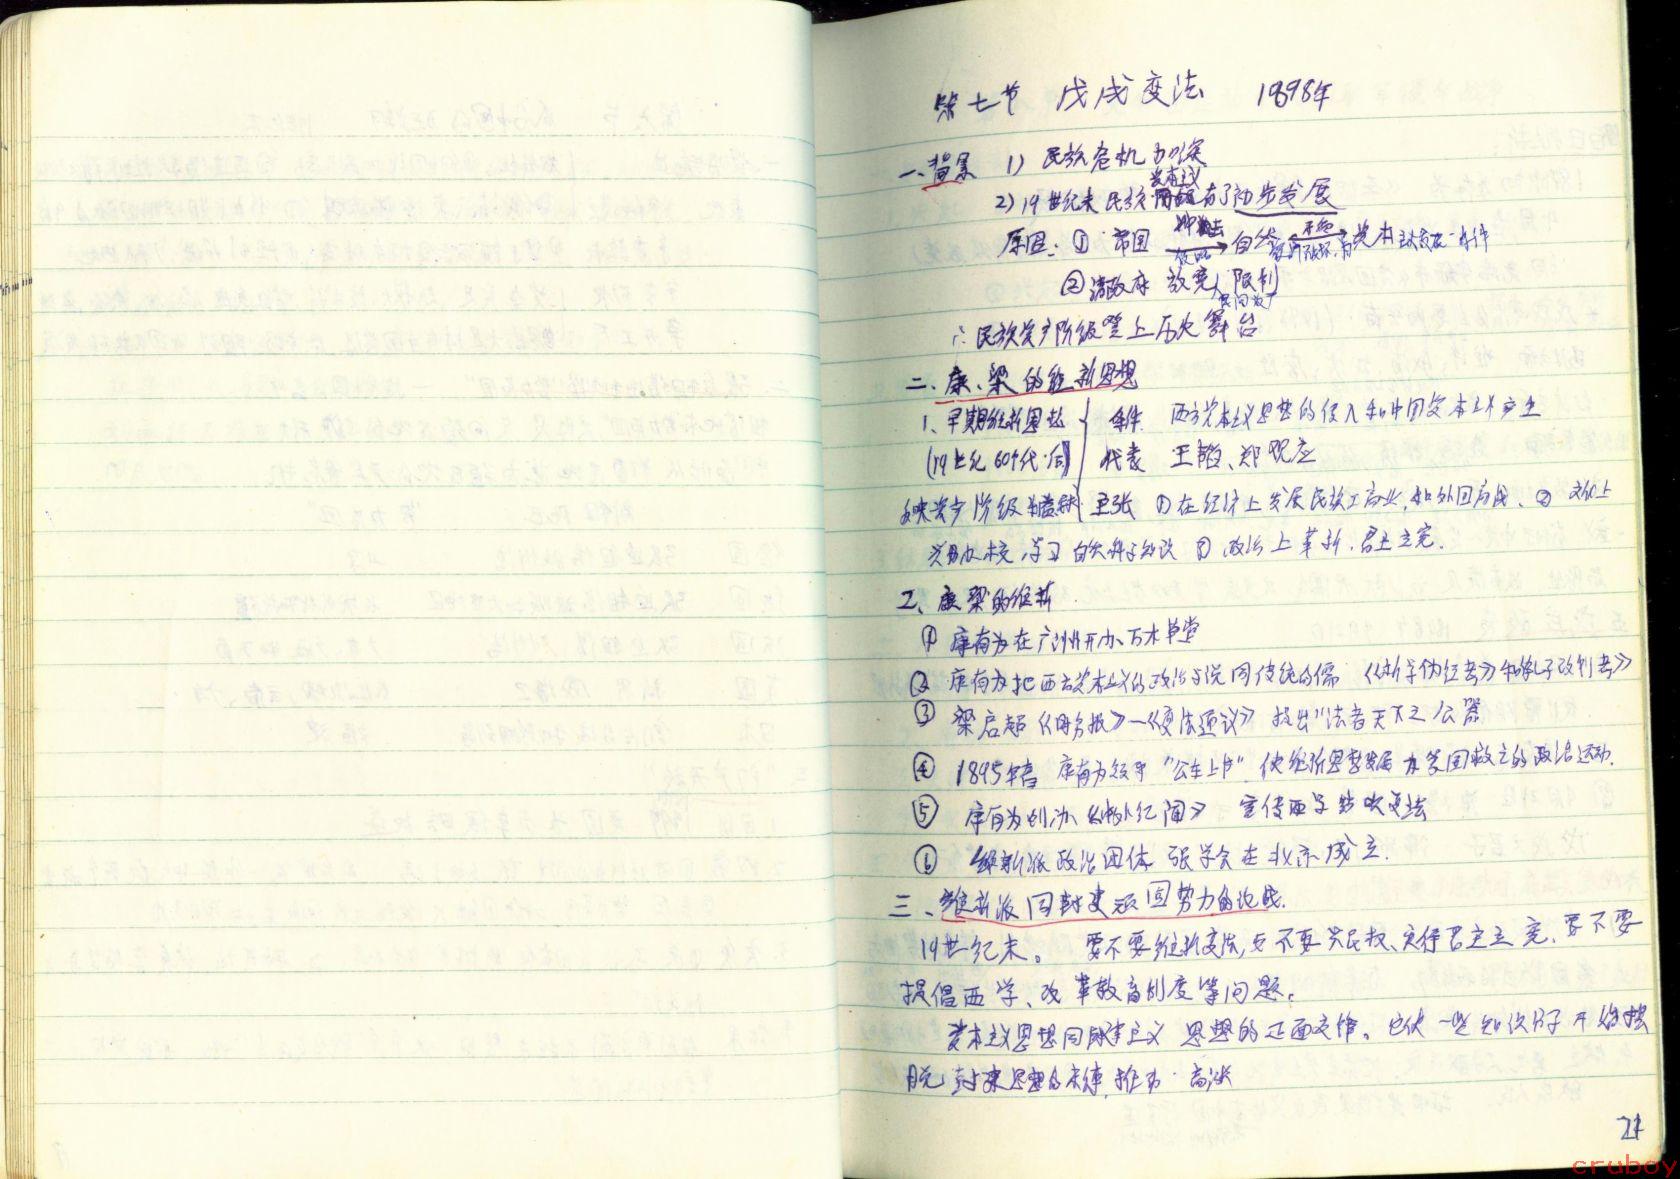 第七节 戊戌变法 1898年
一、背景 1) 民族危机加深
资本主义
2) 19世纪末民族有了初步发展
原因: ① 帝国 → 自然 资本主义发展 条件
② 清政府 放宽 限制
民间设厂
∴ 民族资产阶级登上历史舞台
二、康、梁的维新思想
1、早期维新思想 条件 西方资本主义思想的侵入和中国资本主义产生
(19世纪60年代后) 代表 王韬、郑观应
反映资产阶级 主张 ①在经济上发展民族工商业,和外国商战、②文化上
兴办学校,学习自然科学知识 ③政治上革新.君主立宪.
2、康梁的维新
① 康有为在广州开办万木草堂
② 康有为把西方资本主义的政治学说同传统的儒 《新学伪经考》和《孔子改制考》
③ 梁启超《时务报》—《变法通议》提出"法者天下之公器
④ 1895年春 康有为领导"公车上书".使维新思想发展为爱国救亡的政治运动.
⑤ 康有为创办《中外纪闻》 宣传西学鼓吹变法
⑥ 维新派政治团体 强学会在北京成立.
三、维新派同封建顽固势力的论战.
19世纪末。 要不要维新变法,要不要兴民权、实行君主立宪、要不要
提倡西学、改革教育制度等问题。
资本主义思想同封建主义思想的正面交锋。它使一些知识分子开始摆
脱封建思想的束缚, 高涨
21
cruboy